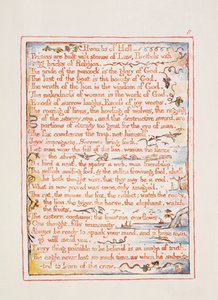 8
Proverbs of Hell
Prisons are built with stones of Law, Brothels with
bricks of Religion.
The pride of the peacock is the glory of God.
The lust of the goat is the bounty of God.
The wrath of the lion is the wisdom of God.
The nakedness of woman is the work of God.
Excess of sorrow laughs. Excess of joy weeps.
The roaring of lions, the howling of wolves, the raging
of the stormy sea, and the destructive sword, are
portions of eternity too great for the eye of man.
The fox condemns the trap, not himself.
Joys impregnate. Sorrows bring forth.
Let man wear the fell of the lion, woman the fleece
of the sheep.
The bird a nest, the spider a web, man friendship.
The selfish smiling fool, & the sullen frowning fool, shall
be both thought wise, that they may be a rod.
What is now proved was once, only imagin'd.
The rat, the mouse, the fox, the rabbet: watch the roots,
the lion, the tyger, the horse, the elephant, watch
the fruits.
The cistern contains; the fountain overflows
One thought, fills immensity.
Always be ready to speak your mind, and a base man
will avoid you.
Every thing possible to be believ'd is an image of truth.
The eagle never lost so much time, as when he submit-
-ted to learn of the crow.